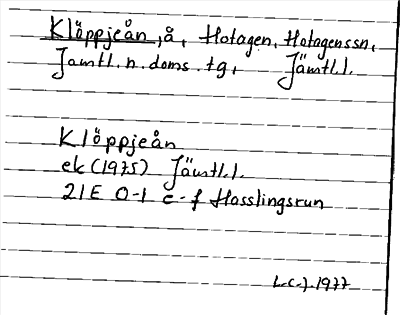 Klöppjeån, å, Hotagen, Hotagenssn,
Jämtl. n. doms. tg, Jämtl.l.
Klöppjeån
ek (1975) Jämtl.l.
21E 0-1 e-f Hasslingsrun
L.C.J. 1977